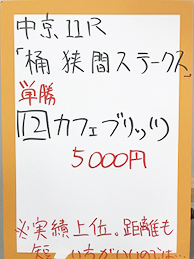 中京11R
「桶狭間ステークス」
単勝
12カフェブリッツ
5000円
※実績上位。距離も
短い方がいいのでは…